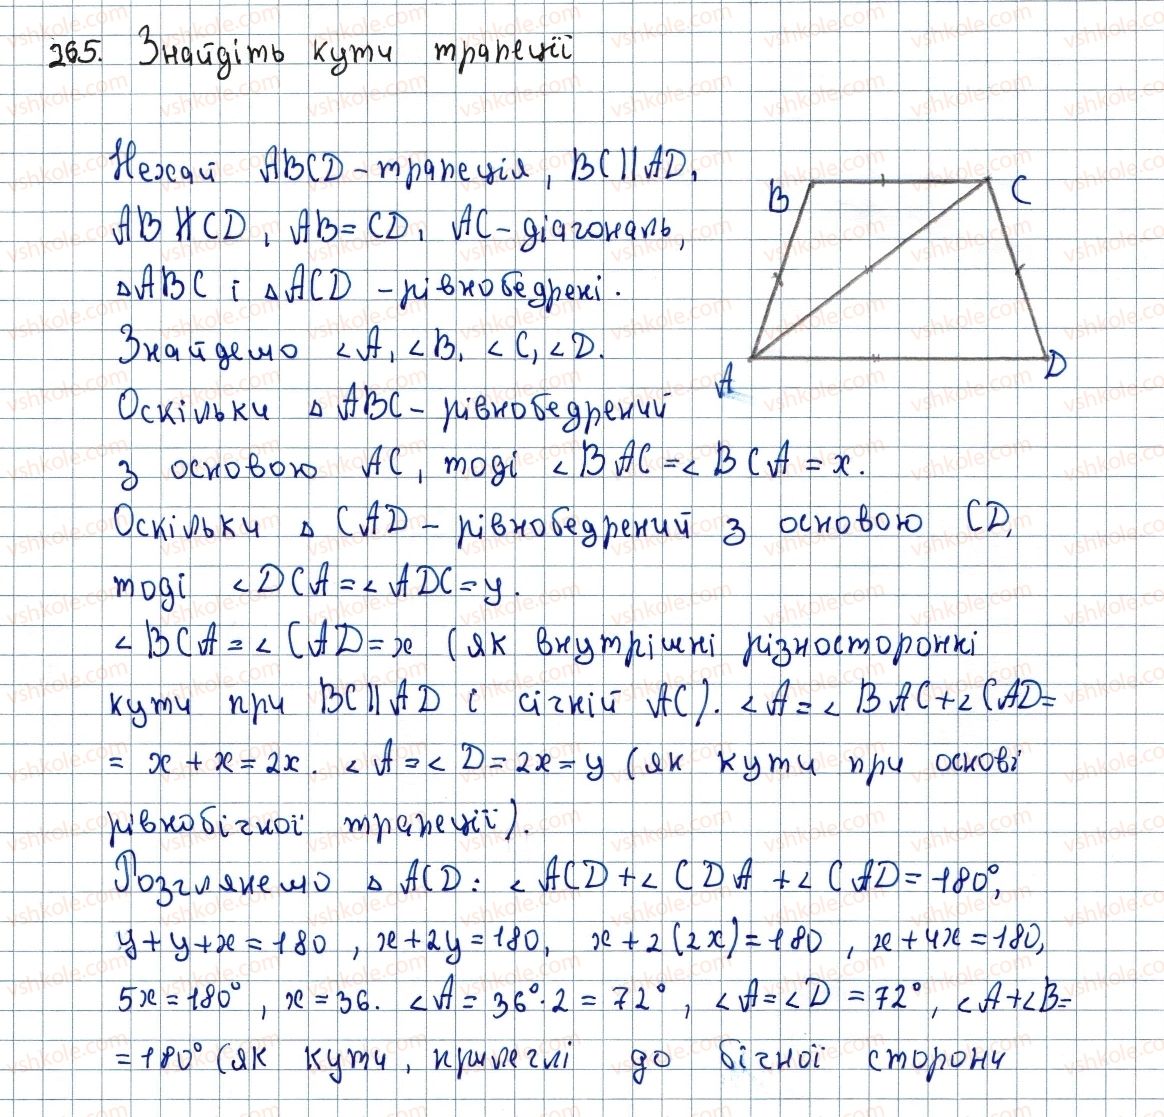 265. Знайдіть кути трапеції
Нехай ABCD - трапеція, BC || AD,
AB ∦ CD, AB = CD, AC - діагональ,
△ABC і △ACD - рівнобедрені.
Знайдемо ∠A, ∠B, ∠C, ∠D.
Оскільки △ABC - рівнобедрений
з основою AC, тоді ∠BAC = ∠BCA = x.
Оскільки △CAD - рівнобедрений з основою CD,
тоді ∠DCA = ∠ADC = y.
∠BCA = ∠CAD = x (як внутрішні різносторонні
кути при BC || AD і січній AC). ∠A = ∠BAC + ∠CAD =
= x + x = 2x. ∠A = ∠D = 2x = y (як кути при основі
рівнобічної трапеції).
Розглянемо △ACD: ∠ACD + ∠CDA + ∠CAD = 180°,
y + y + x = 180, x + 2y = 180, x + 2(2x) = 180, x + 4x = 180,
5x = 180°, x = 36. ∠A = 36° · 2 = 72°, ∠A = ∠D = 72°, ∠A + ∠B =
= 180° (як кути, прилеглі до бічної сторони
B
C
A
D
vshkole.com